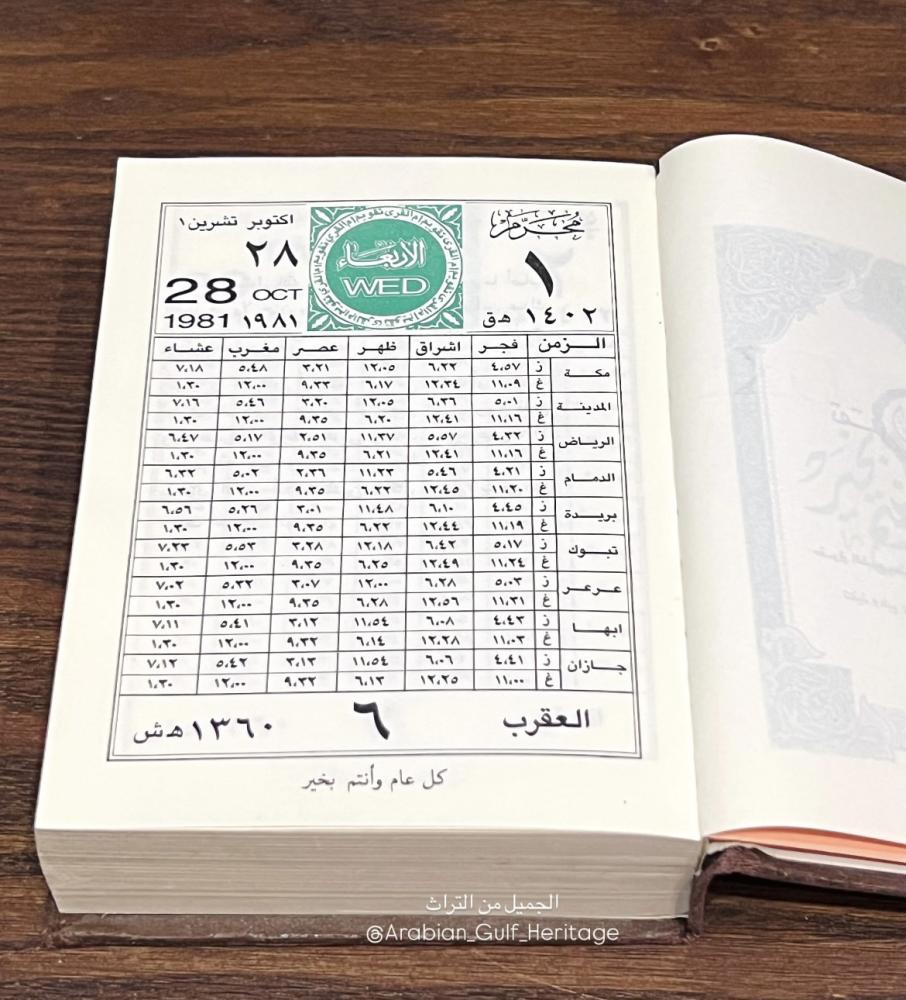 محرم
١
١٤٠٢ هـ ق
الاربعاء
WED
اكتوبر تشرين١
٢٨
28 OCT
1981 ١٩٨١
الـزمن فجر اشراق ظهر عصر مغرب عشاء
مكة ز ٤،٥٧ ٦،٢٢ ١٢،٠٥ ٣،٢١ ٥،٤٨ ٧،١٨
غ ١١،٠٩ ١٢،٣٤ ٦،١٧ ٩،٣٣ ١٢،٠٠ ١،٣٠
المدينة ز ٥،٠١ ٦،٢٦ ١٢،٠٥ ٣،٢٠ ٥،٤٦ ٧،١٦
غ ١١،١٦ ١٢،٤١ ٦،٢٠ ٩،٣٥ ١٢،٠٠ ١،٣٠
الرياض ز ٤،٣٢ ٥،٥٧ ١١،٣٧ ٢،٥١ ٥،١٧ ٦،٤٧
غ ١١،١٦ ١٢،٤١ ٦،٢١ ٩،٣٥ ١٢،٠٠ ١،٣٠
الدمام ز ٤،٢١ ٥،٤٦ ١١،٢٣ ٢،٣٦ ٥،٠٢ ٦،٣٢
غ ١١،٢٠ ١٢،٤٥ ٦،٢٢ ٩،٣٥ ١٢،٠٠ ١،٣٠
بريدة ز ٤،٤٥ ٦،١٠ ١١،٤٨ ٣،٠١ ٥،٢٦ ٦،٥٦
غ ١١،١٩ ١٢،٤٤ ٦،٢٢ ٩،٣٥ ١٢،٠٠ ١،٣٠
تبوك ز ٥،١٧ ٦،٤٢ ١٢،١٨ ٣،٢٨ ٥،٥٣ ٧،٢٣
غ ١١،٢٤ ١٢،٤٩ ٦،٢٥ ٩،٣٥ ١٢،٠٠ ١،٣٠
عرعر ز ٥،٠٣ ٦،٢٨ ١٢،٠٠ ٣،٠٧ ٥،٣٢ ٧،٠٢
غ ١١،٣١ ١٢،٥٦ ٦،٢٨ ٩،٣٥ ١٢،٠٠ ١،٣٠
ابها ز ٤،٤٣ ٦،٠٨ ١١،٥٤ ٣،١٢ ٥،٤١ ٧،١١
غ ١١،٠٣ ١٢،٢٨ ٦،١٤ ٩،٣٢ ١٢،٠٠ ١،٣٠
جازان ز ٤،٤١ ٦،٠٦ ١١،٥٤ ٣،١٣ ٥،٤٢ ٧،١٢
غ ١١،٠٠ ١٢،٢٥ ٦،١٣ ٩،٣٢ ١٢،٠٠ ١،٣٠
العقرب ٦ ١٣٦٠ هـ ش
كل عام وأنتم بخير
الجميل من التراث
@Arabian_Gulf_Heritage